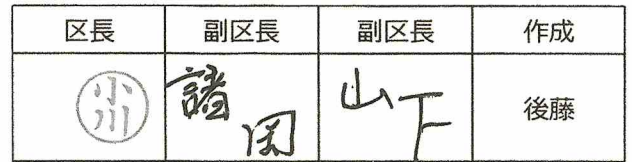 区長 副区長 副区長 作成
小川 諸岡 山下 後藤